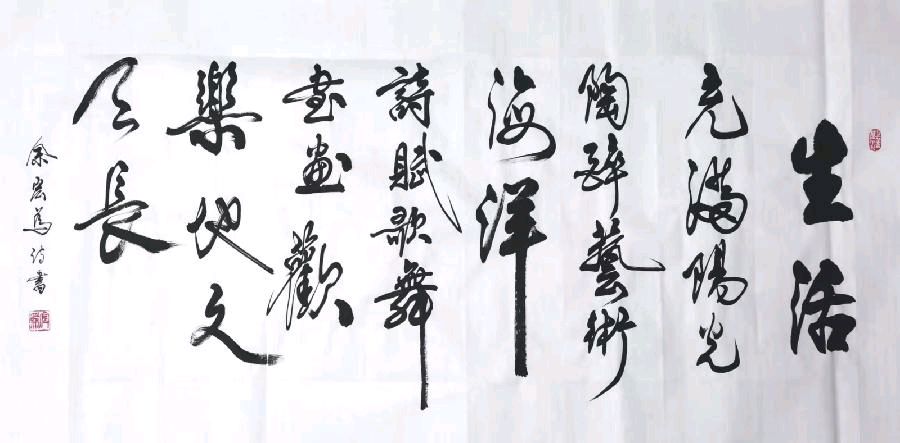 生活
充满陽光
陶醉藝術
海洋
詩賦歌舞
書畫歡
樂地久
天長
余宏為詩書